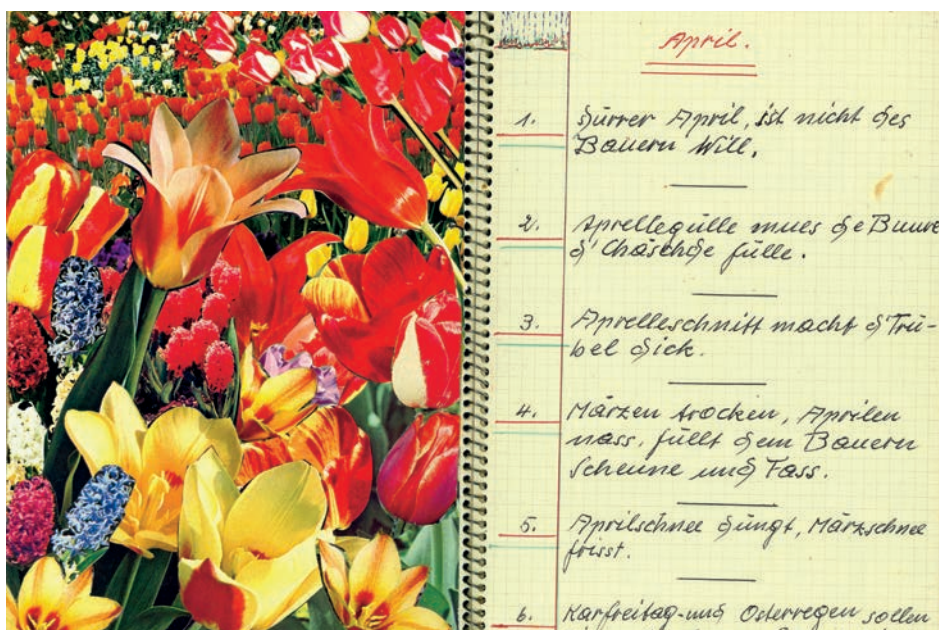 April.
1. Dürrer April, ist nicht des
Bauern Will.
2. Aprellegülle mues de Buure
d'Chäschde fülle.
3. Aprelleschnitt macht d Trü-
bel dick.
4. Märzen trocken, Aprilen
nass, füllt dem Bauern
Scheune und Fass.
5. Aprilschnee düngt, Märzschnee
frisst.
6. Karfreitag- und Osterregen sollen